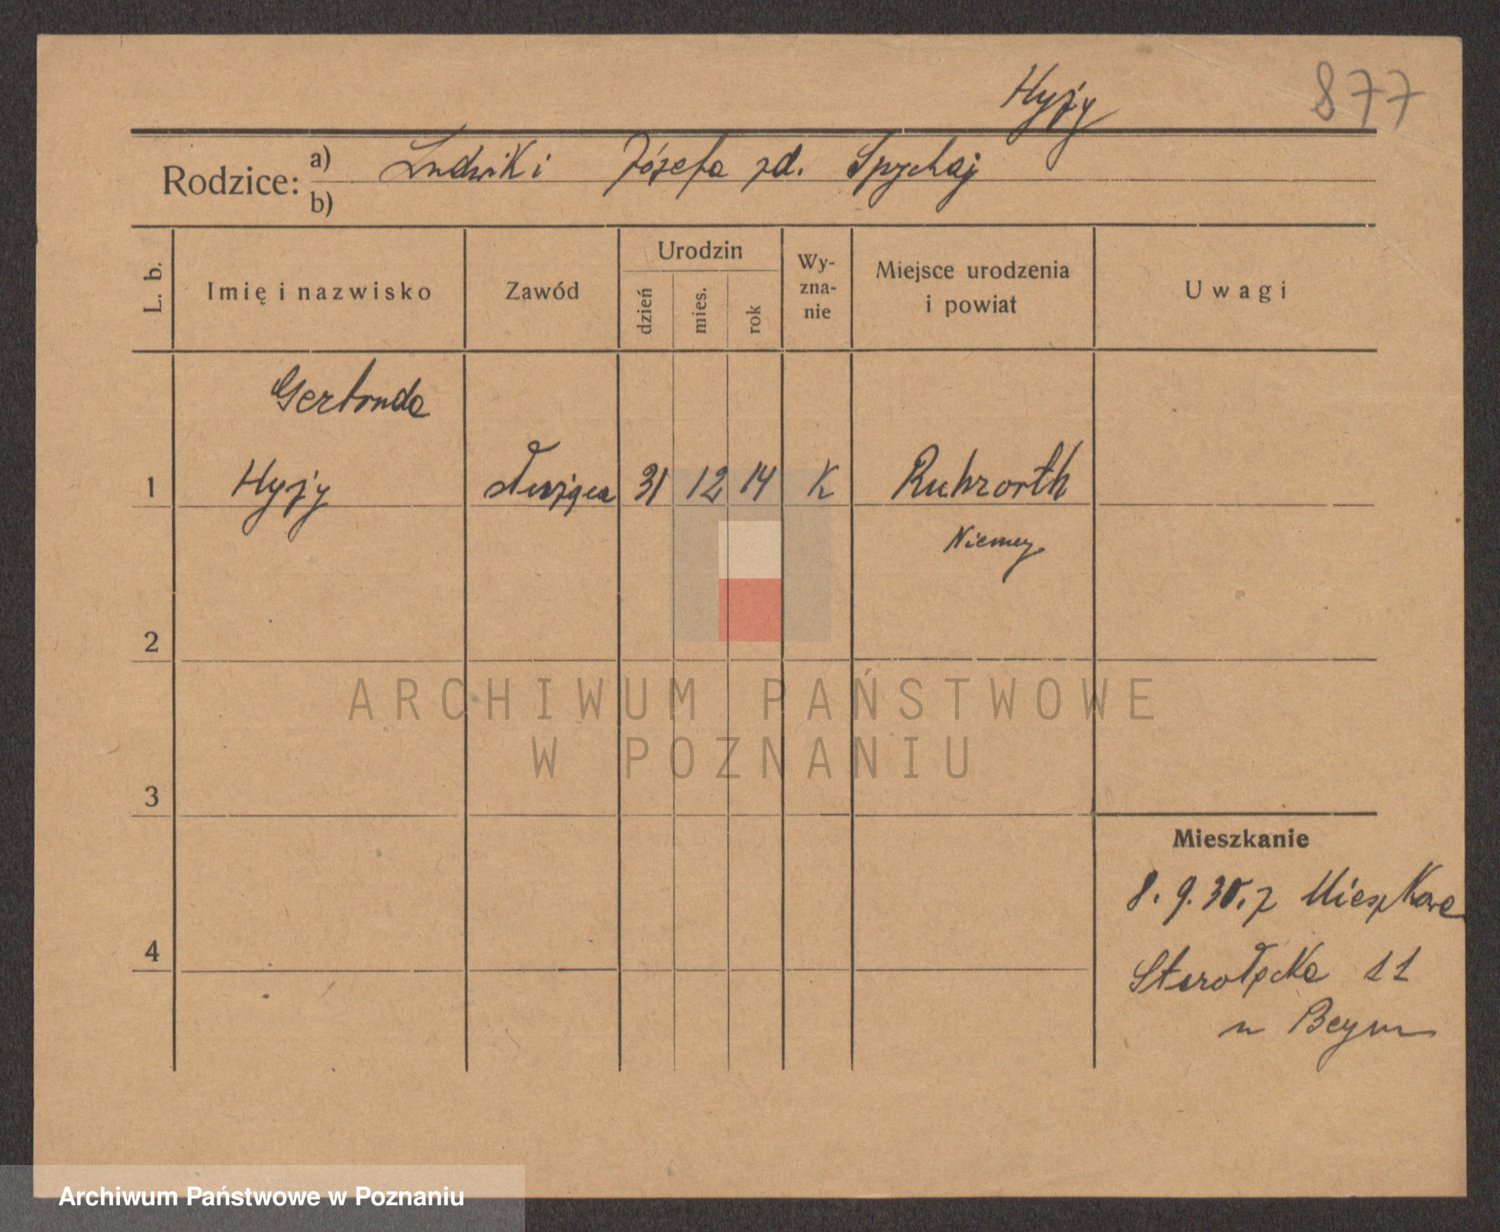 Hyży
877
Rodzice:
a) Ludwik i Józefa zd. Spychaj
b)
L. b.
Imię i nazwisko
Zawód
Urodzin
dzień
mies.
rok
Wy-
zna-
nie
Miejsce urodzenia
i powiat
Uwagi
Gertruda
1 Hyży służąca 31 12 14 K Ruhrorth
Niemcy
2
3
4
Mieszkanie
8. 9. 30. z
Starołęcka 11
u Beym
ARCHIWUM PAŃSTWOWE
W POZNANIU
Archiwum Państwowe w Poznaniu